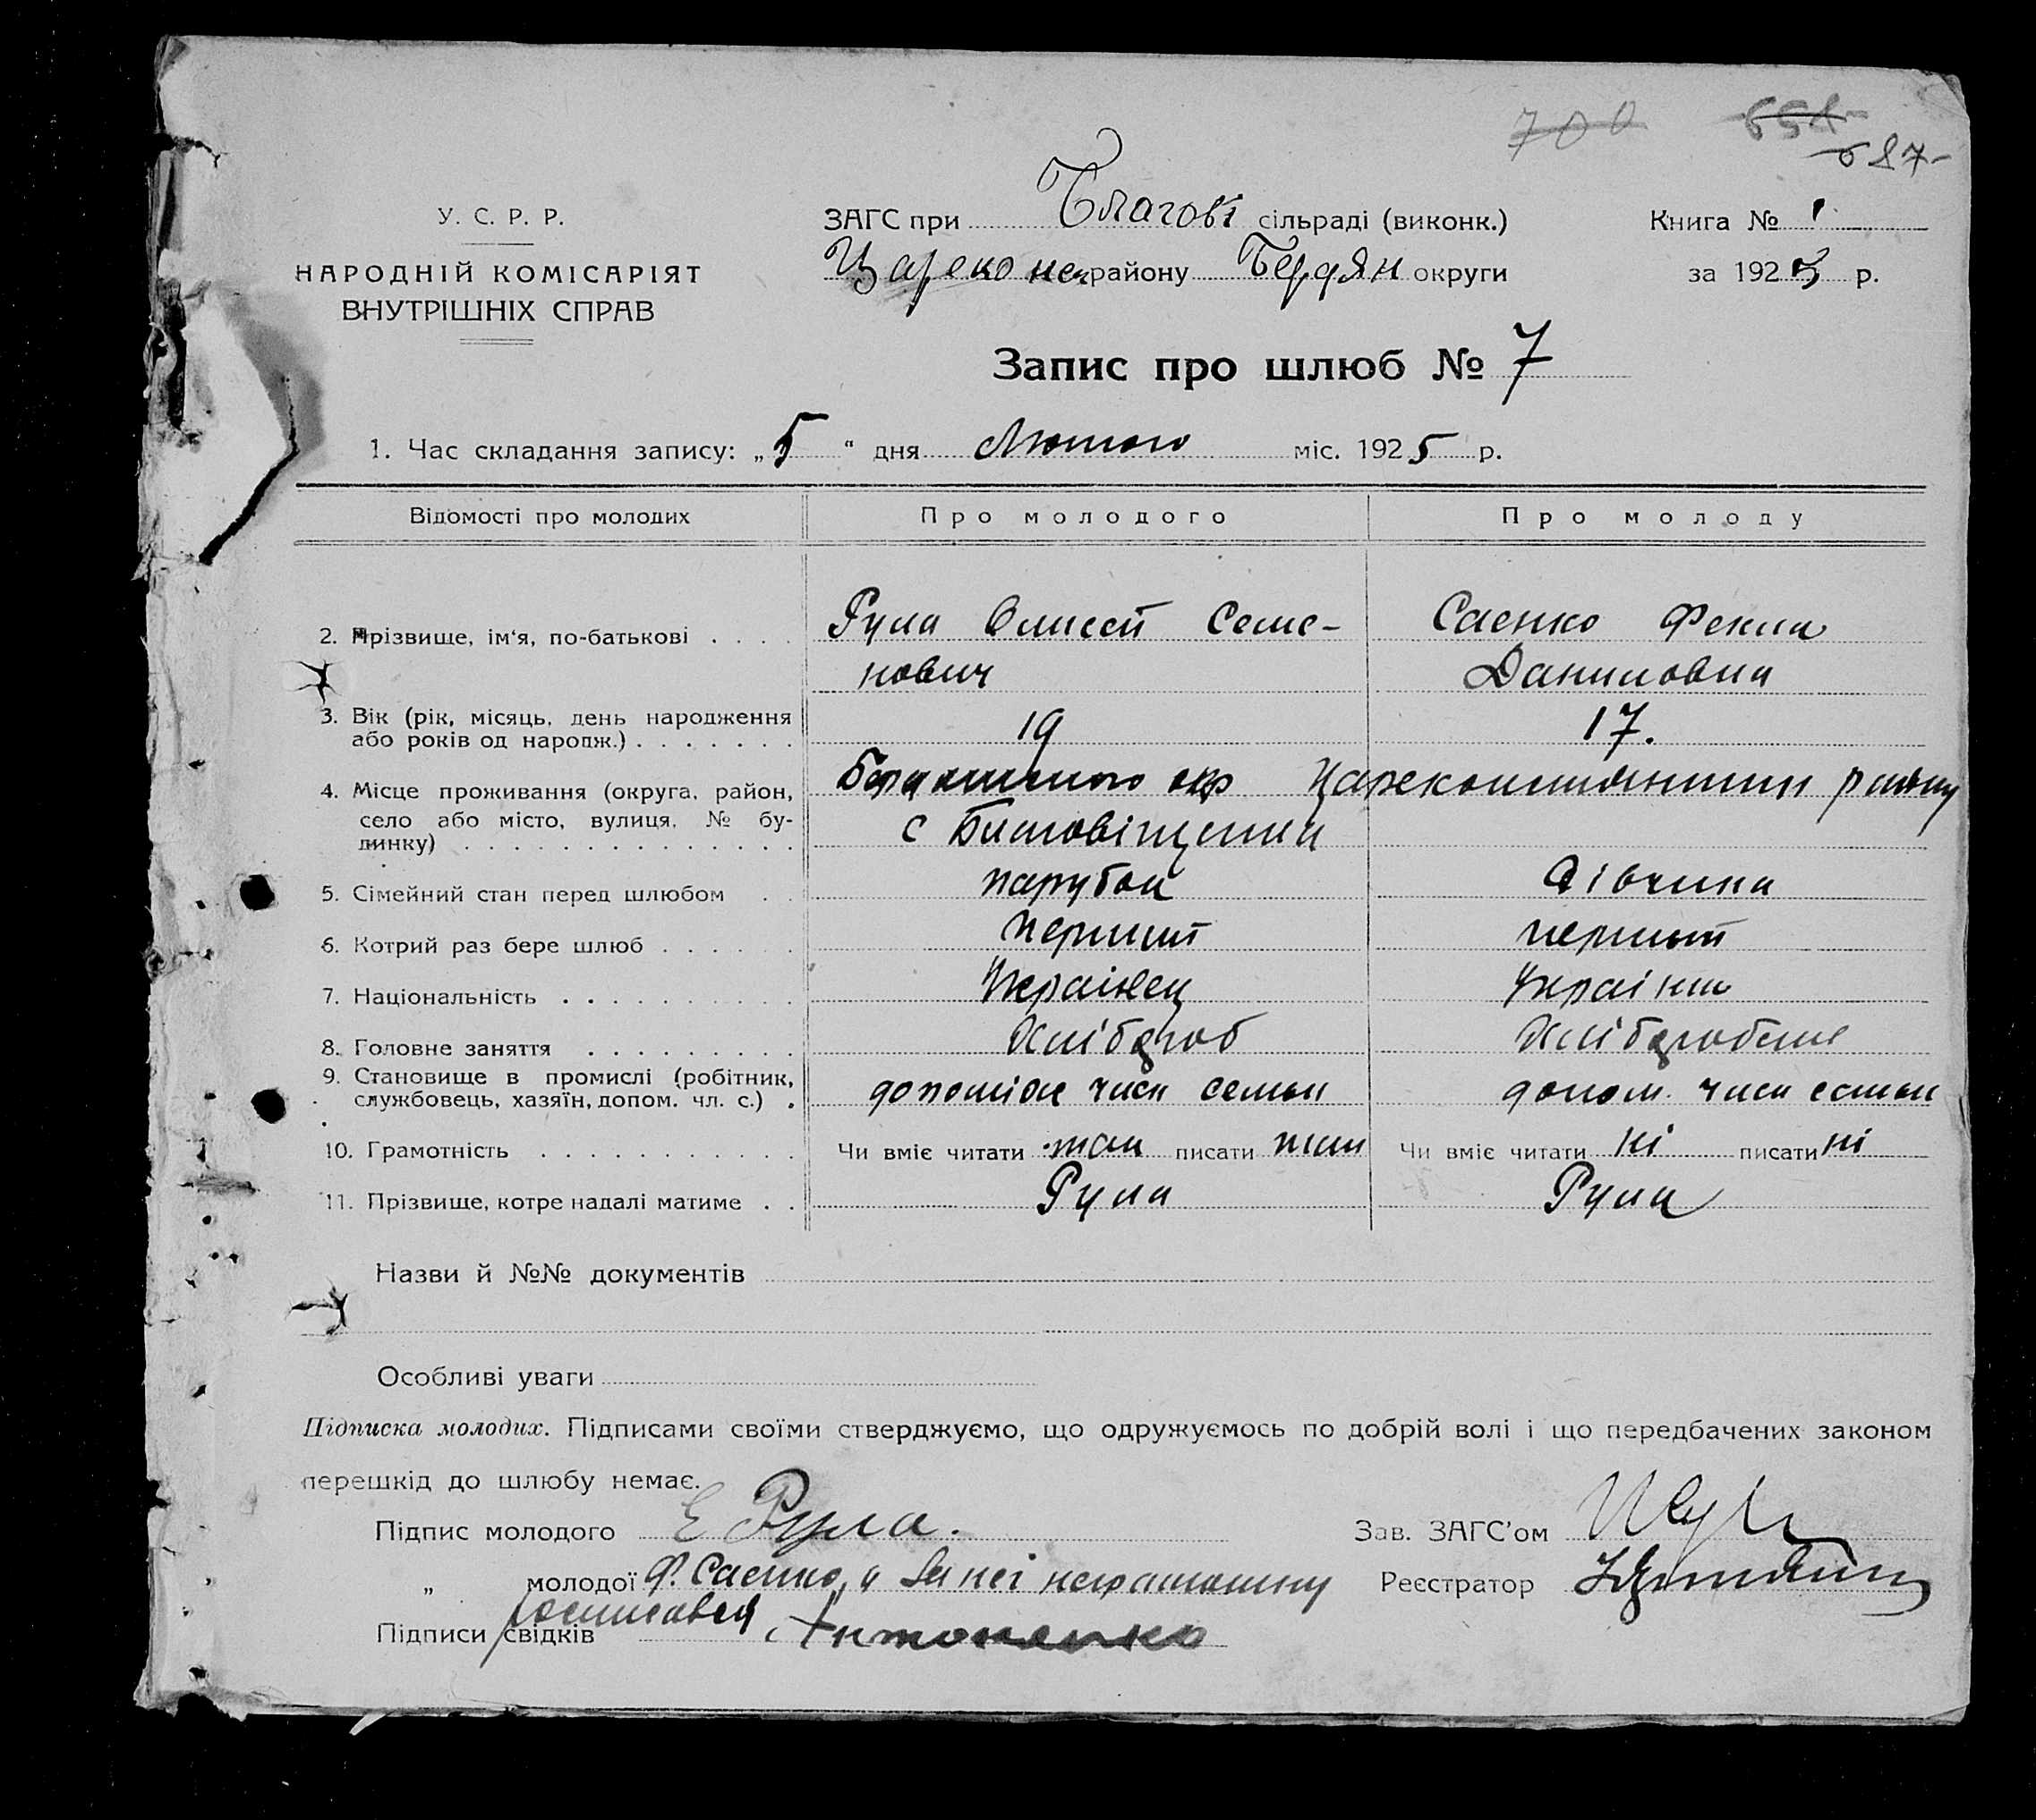 700 654
687
У. С. Р. Р.
НАРОДНІЙ КОМІСАРІЯТ
ВНУТРІШНІХ СПРАВ
ЗАГС при Благові сільраді (виконк.)
Царекон району Бердян округи
Книга № 1
за 1925 р.
Запис про шлюб № 7
1. Час складання запису: „5“ дня Лютого міс. 1925 р.
Відомості про молодих Про молодого Про молоду
2. Прізвище, ім‘я, по-батькові . . . . Рула Єлисей Семе- Саенко Фекла
нович Даниловна
3. Вік (рік, місяць, день народження
або років од народж.) . . . . . . . 19 17.
4. Місце проживання (округа, район, окр району
село або місто, вулиця, № бу- с
динку) . . . . . . . . . . . . . .
5. Сімейний стан перед шлюбом . . парубок дівчина
6. Котрий раз бере шлюб . . . . . . первий первый
7. Національність . . . . . . . . . . Українец Українка
8. Головне заняття . . . . . . . . . Хлібороб
9. Становище в промислі (робітник,
службовець, хазяїн, допом. чл. с.) . член семьи допом. член семьи
10. Грамотність . . . . . . . . . . . Чи вміє читати так писати так Чи вміє читати ні писати ні
11. Прізвище, котре надалі матиме . . Рула Рула
Назви й №№ документів
Особливі уваги
Підписка молодих. Підписами своїми стверджуємо, що одружуємось по добрій волі і що передбачених законом
перешкід до шлюбу немає.
Підпис молодого Е Рула. Зав. ЗАГС’ом
„ молодої Ф. Саенко, а за неі Реєстратор
росписався
Підписи свідків Антоненко